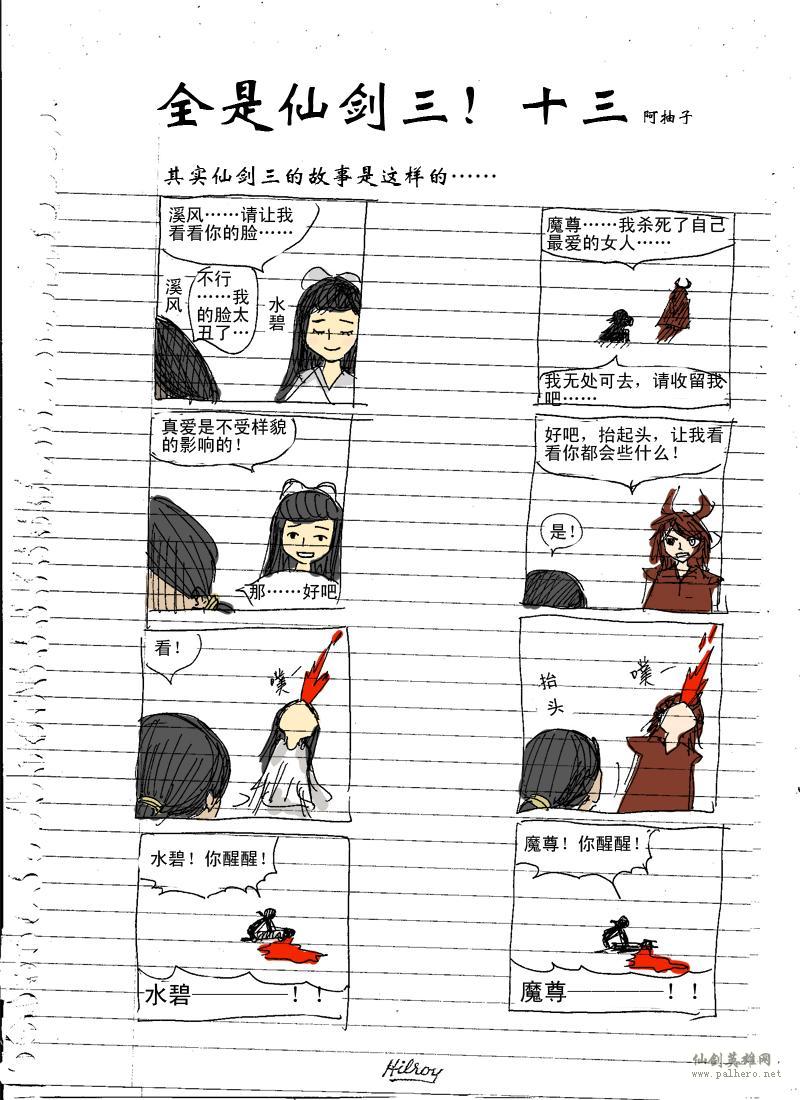 全是仙剑三！十三 阿抽子
其实仙剑三的故事是这样的……
溪风……请让我
看看你的脸……
溪风
不行
……我
的脸太
丑了…
水碧
真爱是不受样貌
的影响的！
那……好吧
看！
噗
水碧！你醒醒！
水碧————！！
魔尊……我杀死了自己
最爱的女人……
我无处可去，请收留我
吧……
好吧，抬起头，让我看
看你都会些什么！
是！
抬
头
噗
魔尊！你醒醒！
魔尊————！！
Hilroy
仙剑英雄网
www.palhero.net